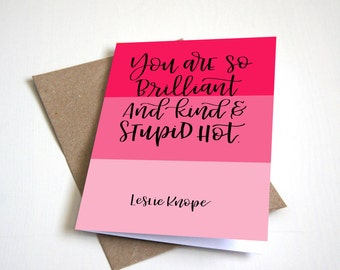 You are so
Brilliant
And kind &
Stupid Hot.
Leslie Knope